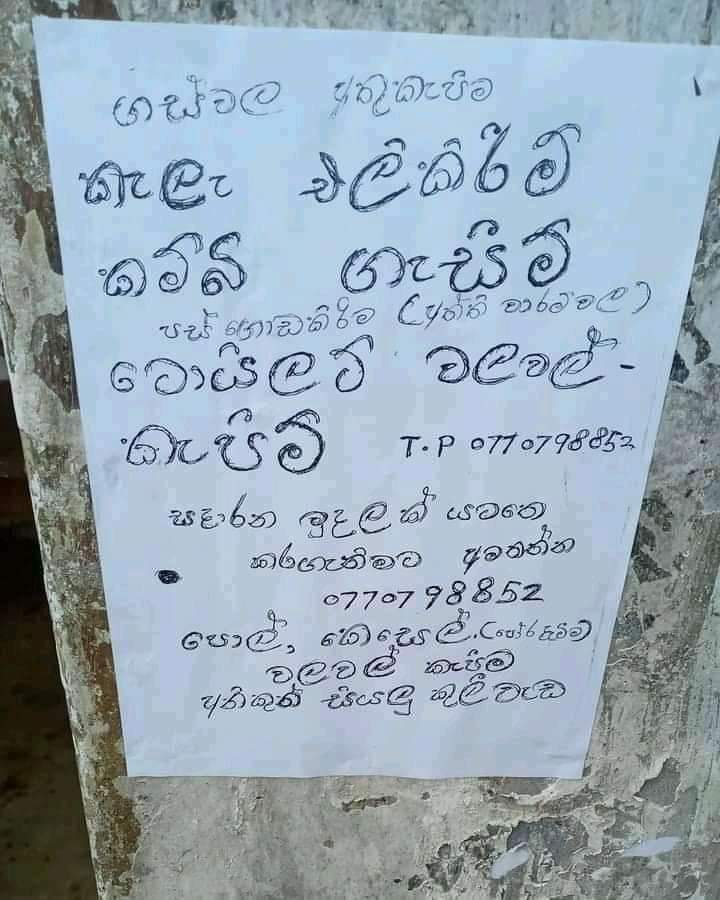 ගස්වල අතුකැපීම
කැලෑ එලිකිරීම්
කම්බි ගැසීම්
පස් ගොඩකිරිම (අත්ති වාරම්වල)
ටොයිලට් වලවල් -
කැපීම් T.P 0770798852
සදාරන මුදලක් යටතෙ
කරගැනිමට අමතන්න
0770798852
පොල්, කෙසෙල්. (පෝරදැමීම)
වලවල් කැපීම
අනිකුත් සියලු කුලීවැඩ